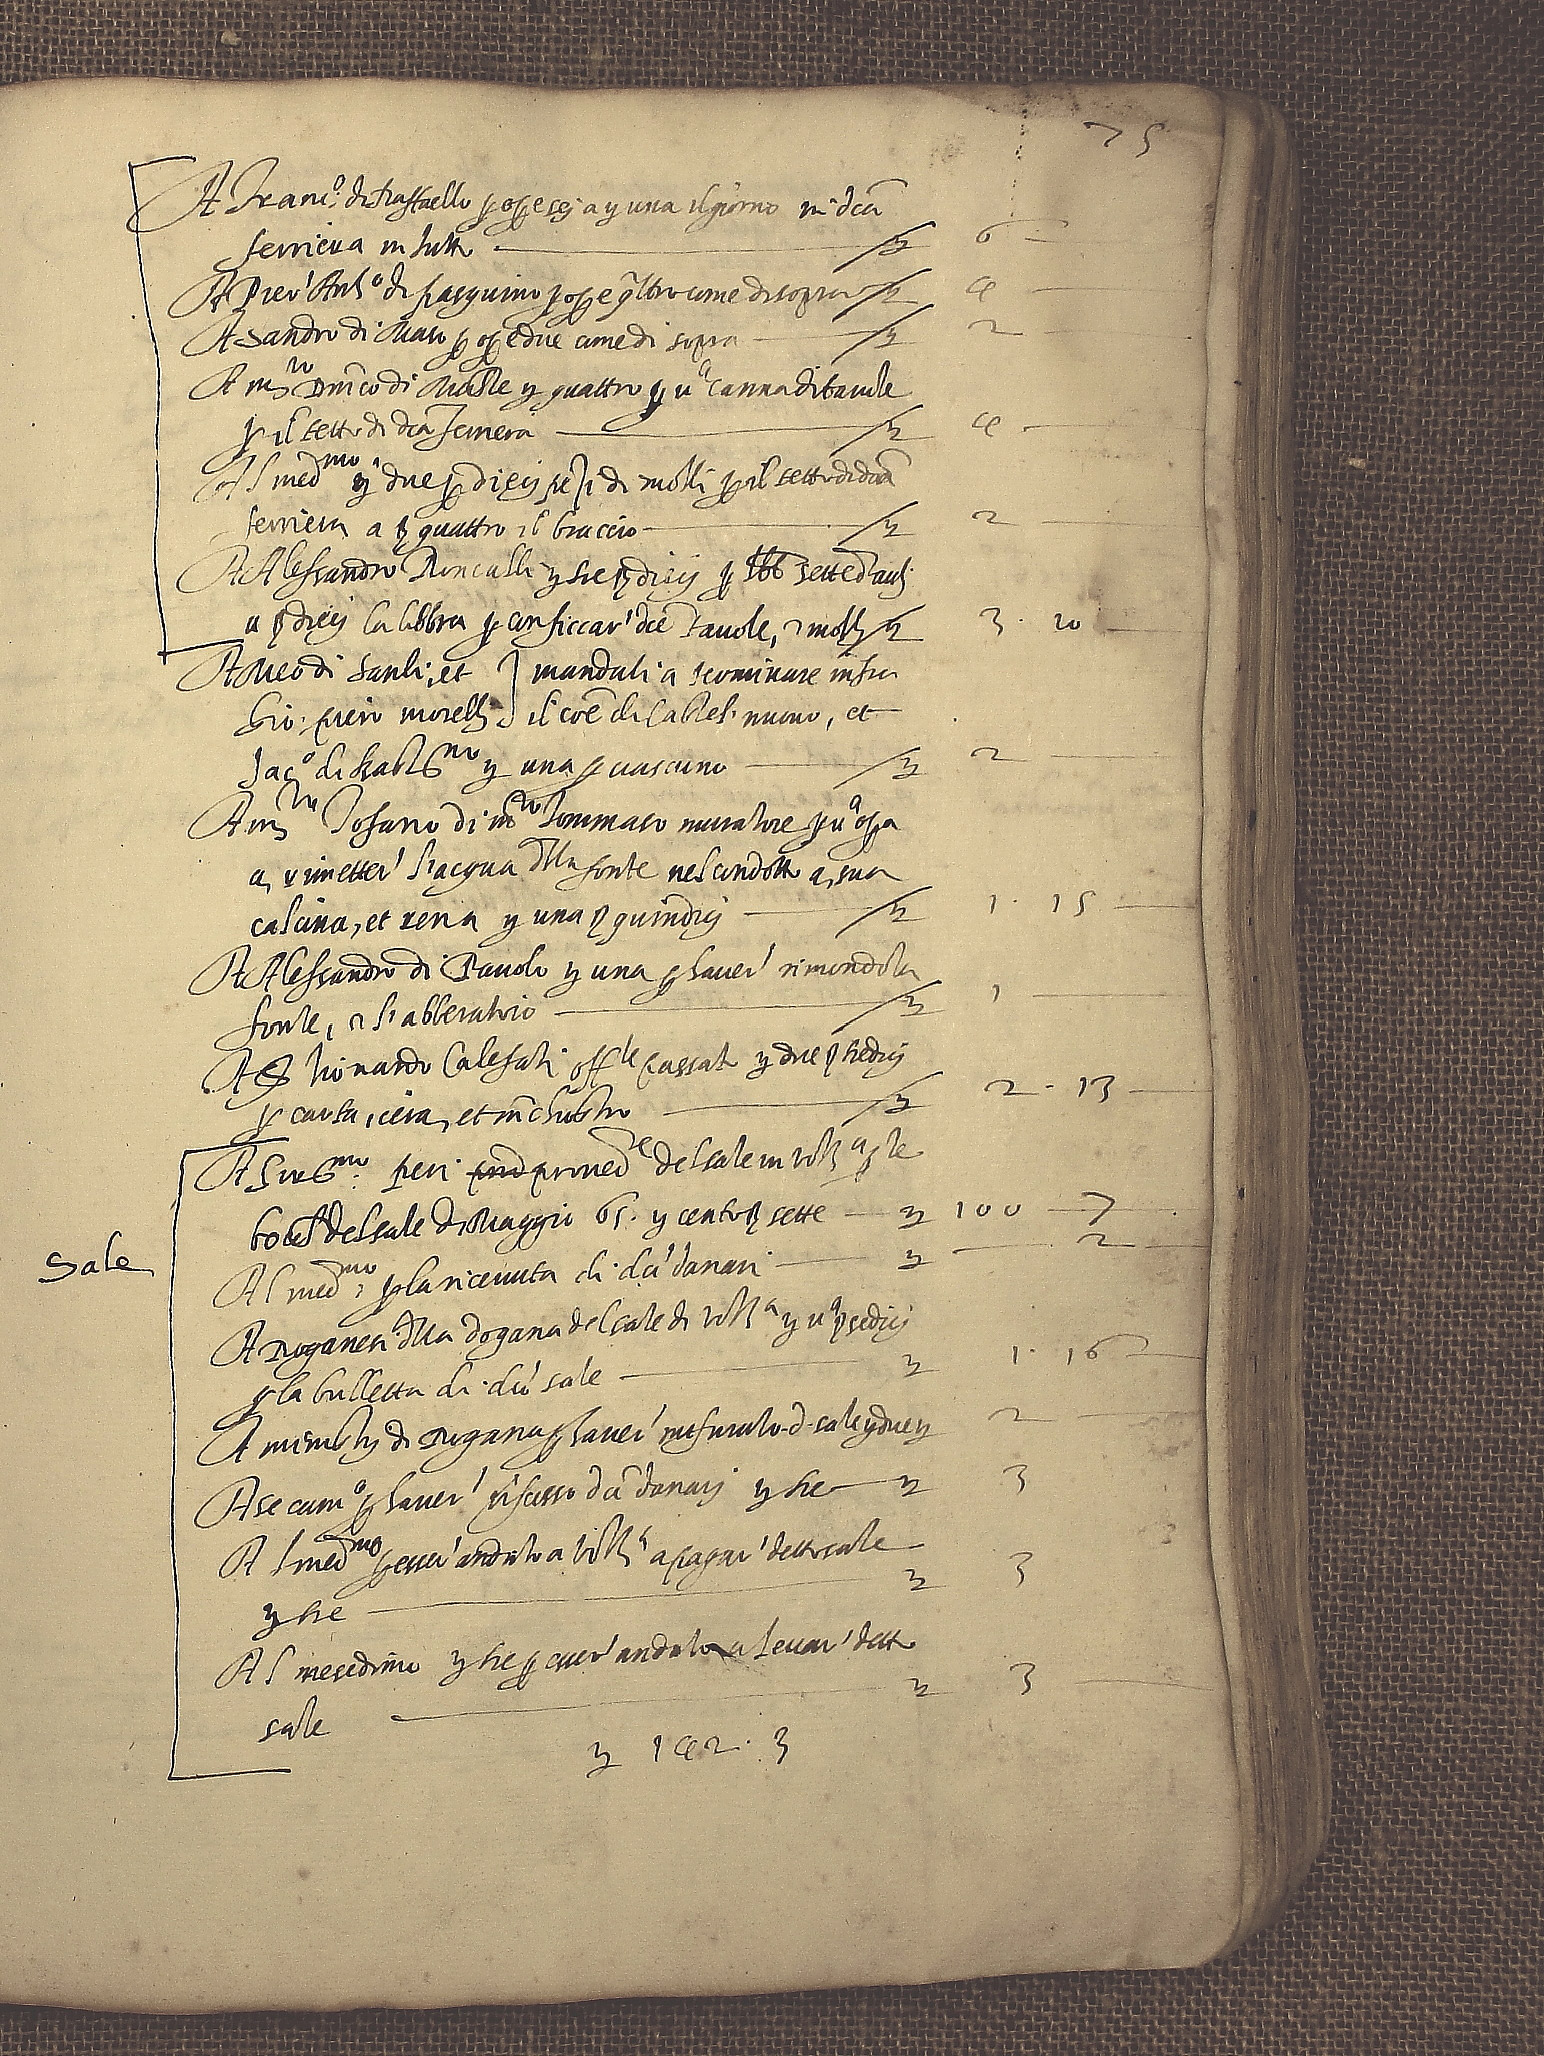 75
A Franc.º di Raffaello p op.e sej a ỻ una il giorno in dc̃a
ferriera in tutto ỻ 6 —
A Pier' Ant.º di Pasquino p op.e q̃ttro come di sopra ỻ 4 —
A Sandro di Maso p op.e due come di sopra ỻ 2 —
A m.ro Dm̃co di ỻ quattro p u.ª canna di tavole
p il tetto di dc̃a ferriera ỻ 4 —
Al med.mo ỻ due p dieci pezi di p il tetto di dc̃a
ferriera a β quattro il braccio ỻ 2 —
A Alessandro Roncalli ỻ tre β dieci p sette d'auti
a β dieci la libbra p conficcar' dc̃e Tavole, ỻ 3 · 10 —
A Meo di Santi; et mandati a terminare infra
Gio: piero morelli il coẽ di Castel nuovo, et
Jac.º di ỻ una p ciascuno ỻ 2 —
A m.ro Tofano di m.ro Tommaso muratore p u.ª op.a
a rimetter' l'acqua d'lla fonte nel condotto a sua
calcina, et rena ỻ una β quindici ỻ 1 · 15 —
A Alessandro di Pavolo ỻ una p haver' rimondo la
fonte, et l'abberatoio ỻ 1 —
A S. Lionardo Calefati off.le passato ỻ due β tredici
p carta, cera, et inchiostro ỻ 2 · 13 —
A peri proved.re del sale in Volt.ª p le
del sale di Maggio 65. ỻ cento β sette ỻ 100 — 7
Sale
Al med.mo p la ricevuta di d.i danari ỻ — 2 —
A Doganieri d'lla dogana del sale di Volt.ª ỻ u.ª β sedici
p la bulletta di d.o sale ỻ 1 · 16
A ministri di Dogana p haver' misurato d.º sale ỻ due ỻ 2 —
A se cam.º p haver' riscosso d.i danari ỻ tre ỻ 3
Al med.mo p esser' andato a Volt.ª a pagar' detto sale
ỻ tre ỻ 3
Al medesimo ỻ tre p esser' andato a levar' detto
sale ỻ 3 —
ỻ 142 · 3